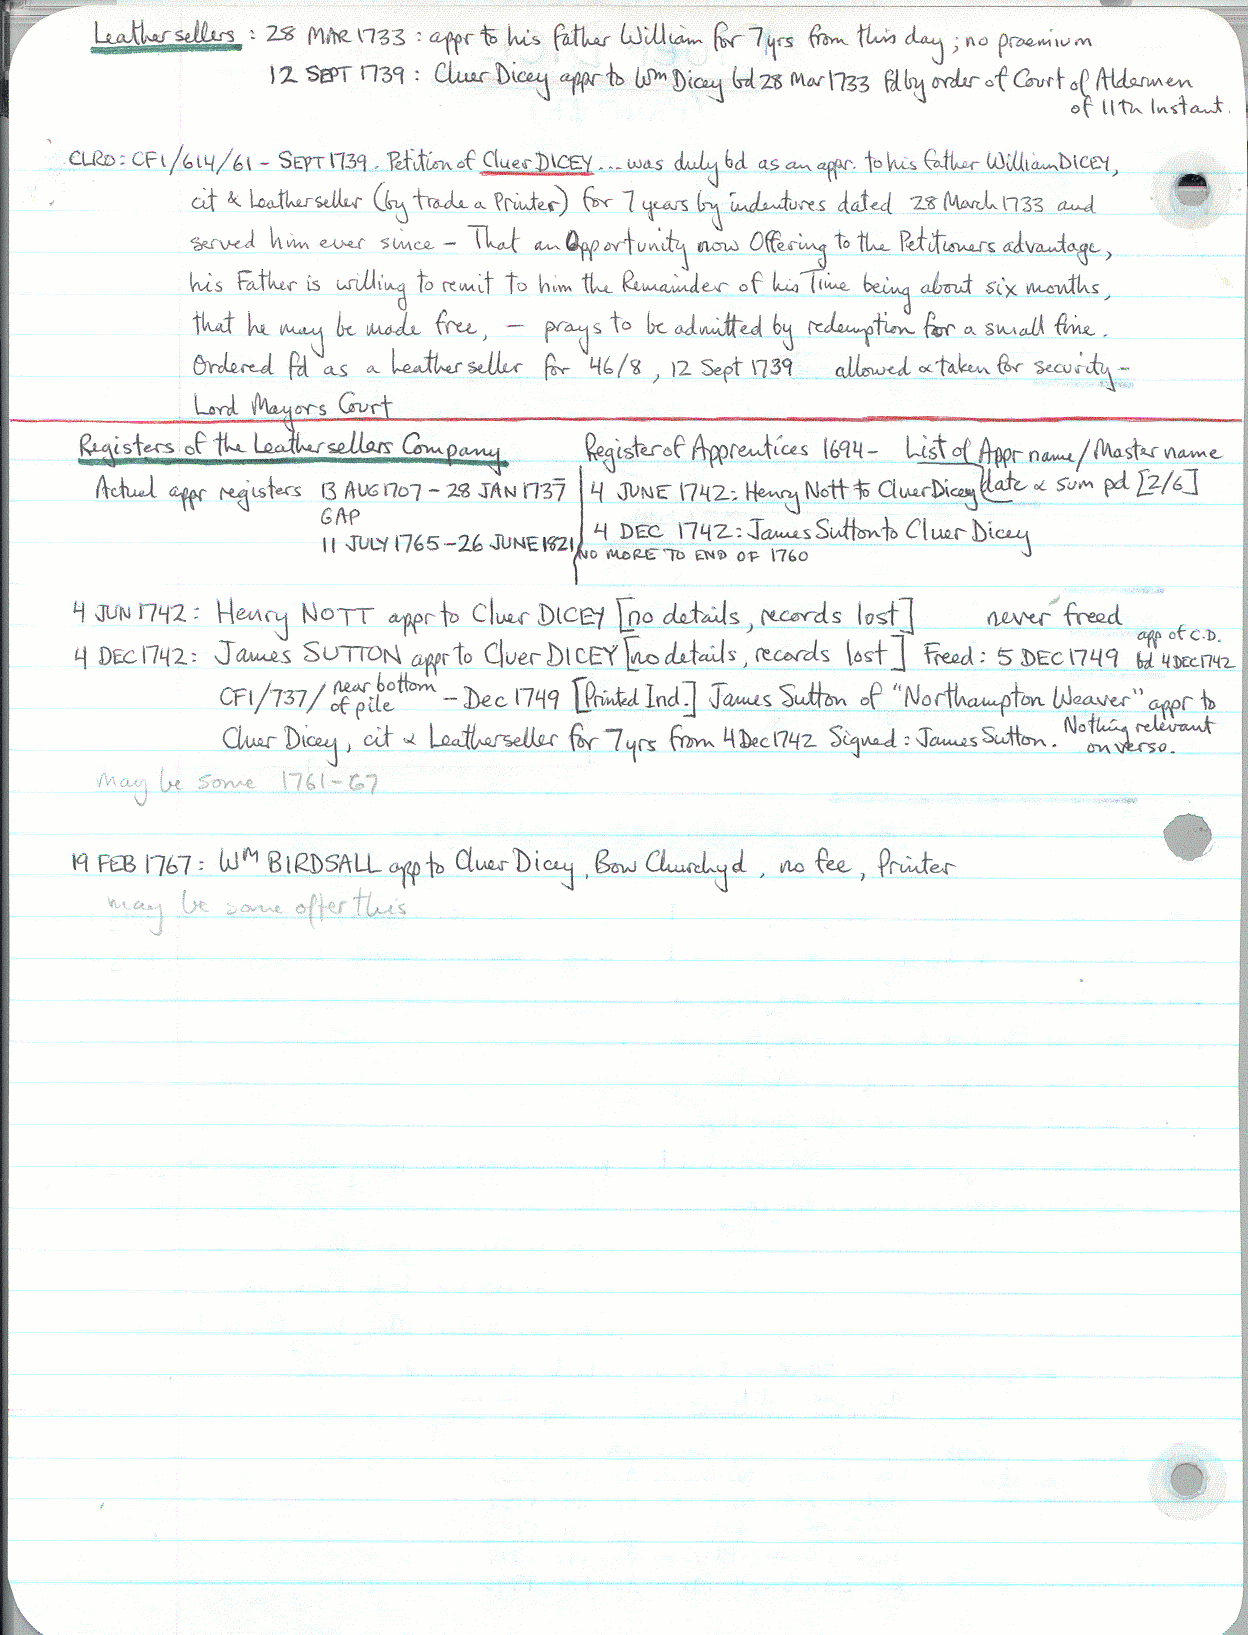 Leathersellers : 28 MAR 1733 : appr to his father William for 7 yrs from this day ; no praemium
12 SEPT 1739 : Cluer Dicey appr to Wm Dicey bd 28 Mar 1733 fd by order of Court of Aldermen
of 11th Instant.
CLRO: CF1/614/61 - SEPT 1739. Petition of Cluer DICEY ... was duly bd as an appr. to his father William DICEY,
cit & Leatherseller (by trade a Printer) for 7 years by indentures dated 28 March 1733 and
served him ever since - That an Opportunity now Offering to the Petitioners advantage,
his Father is willing to remit to him the Remainder of his Time being about six months,
that he may be made free, - prays to be admitted by redemption for a small fine.
Ordered fd as a Leatherseller for 46/8, 12 Sept 1739 allowed & taken for security -
Lord Mayors Court
Registers of the Leathersellers Company
Actual appr registers 13 AUG 1707 - 28 JAN 1737
GAP
11 JULY 1765 - 26 JUNE 1821
Register of Apprentices 1694- List of Appr name/Master name
date & sum pd [2/6]
4 JUNE 1742: Henry Nott to Cluer Dicey
4 DEC 1742: James Sutton to Cluer Dicey
NO MORE TO END OF 1760
4 JUN 1742: Henry NOTT appr to Cluer DICEY [no details, records lost] never freed
4 DEC 1742: James SUTTON appr to Cluer DICEY [no details, records lost] Freed: 5 DEC 1749 app of C.D. bd 4 DEC 1742
CF1/737/ near bottom of pile - Dec 1749 [Printed Ind.] James Sutton of "Northampton Weaver" appr to
Cluer Dicey, cit & Leatherseller for 7 yrs from 4 Dec 1742 Signed: James Sutton. Nothing relevant on verso.
may be some 1761-67
19 FEB 1767: WM BIRDSALL app to Cluer Dicey, Bow Churchyd, no fee, Printer
may be some after this